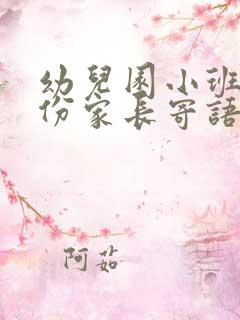 幼兒園小班
份家長寄語
阿茹